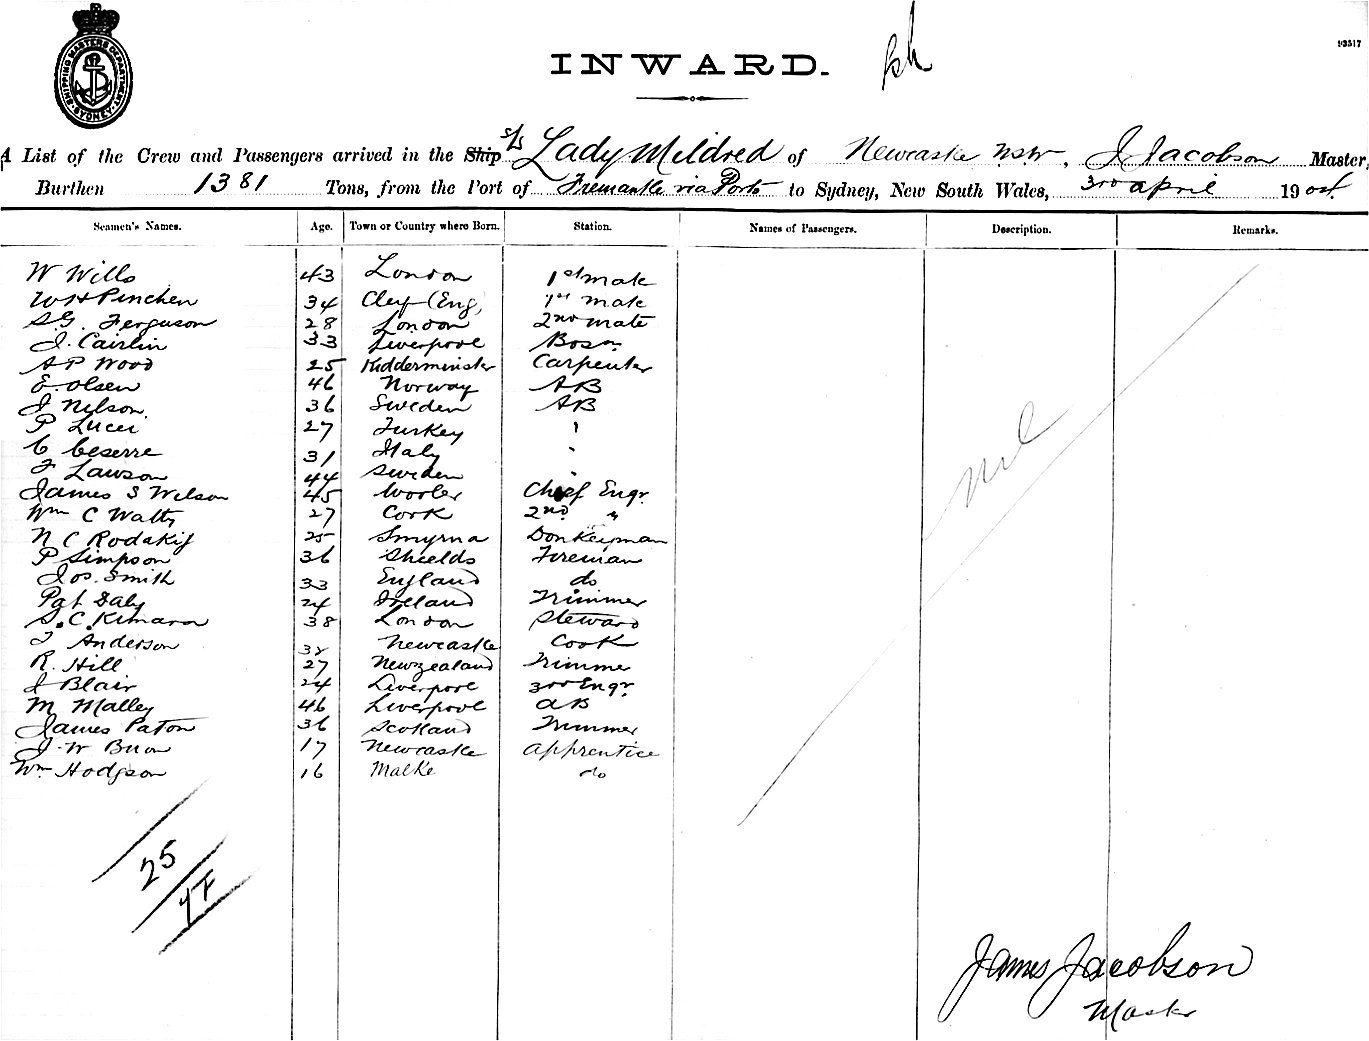 SHIPPING MASTERS DEPARTMENT SYDNEY
INWARD.
93517
A List of the Crew and Passengers arrived in the Ship s/s Lady Mildred of Newcastle NSW, J Jacobson Master,
Burthen 1381 Tons, from the Port of Fremantle via Ports to Sydney, New South Wales, 3rd April 190
Seamen's Names. Age. Town or Country where Born. Station. Names of Passengers. Description. Remarks.
W Wills 43 London 1st mate
WH Pinchen 34 Cley (Eng) 1st mate
S.G. Ferguson 28 London 2nd mate
J. Cairlin 33 Liverpool Bosn
AP Wood 25 Kidderminster Carpenter
E. Olsen 46 Norway AB
J Nelson 36 Sweden AB
P Lucci 27 Turkey "
C Ceserre 31 Italy "
F Lawson 44 Sweden "
James S Wilson 45 Wooler Chief Engr.
Wm C Watts 27 Cork 2nd "
N C Rodakis 25 Smyrna Donkeyman
P Simpson 36 Shields Fireman
Jos. Smith 33 England do
Pat Daly 24 Ireland Trimmer
S.C. 38 London Steward
T Anderson 32 Newcastle Cook
R. Hill 27 Newzealand Trimmer
J Blair 24 Liverpool 3rd Engr.
M Malley 46 Liverpool AB
James Paton 36 Scotland Trimmer
J. W 17 Newcastle apprentice
Wm Hodgson 16 do
nil
25
James Jacobson
Master